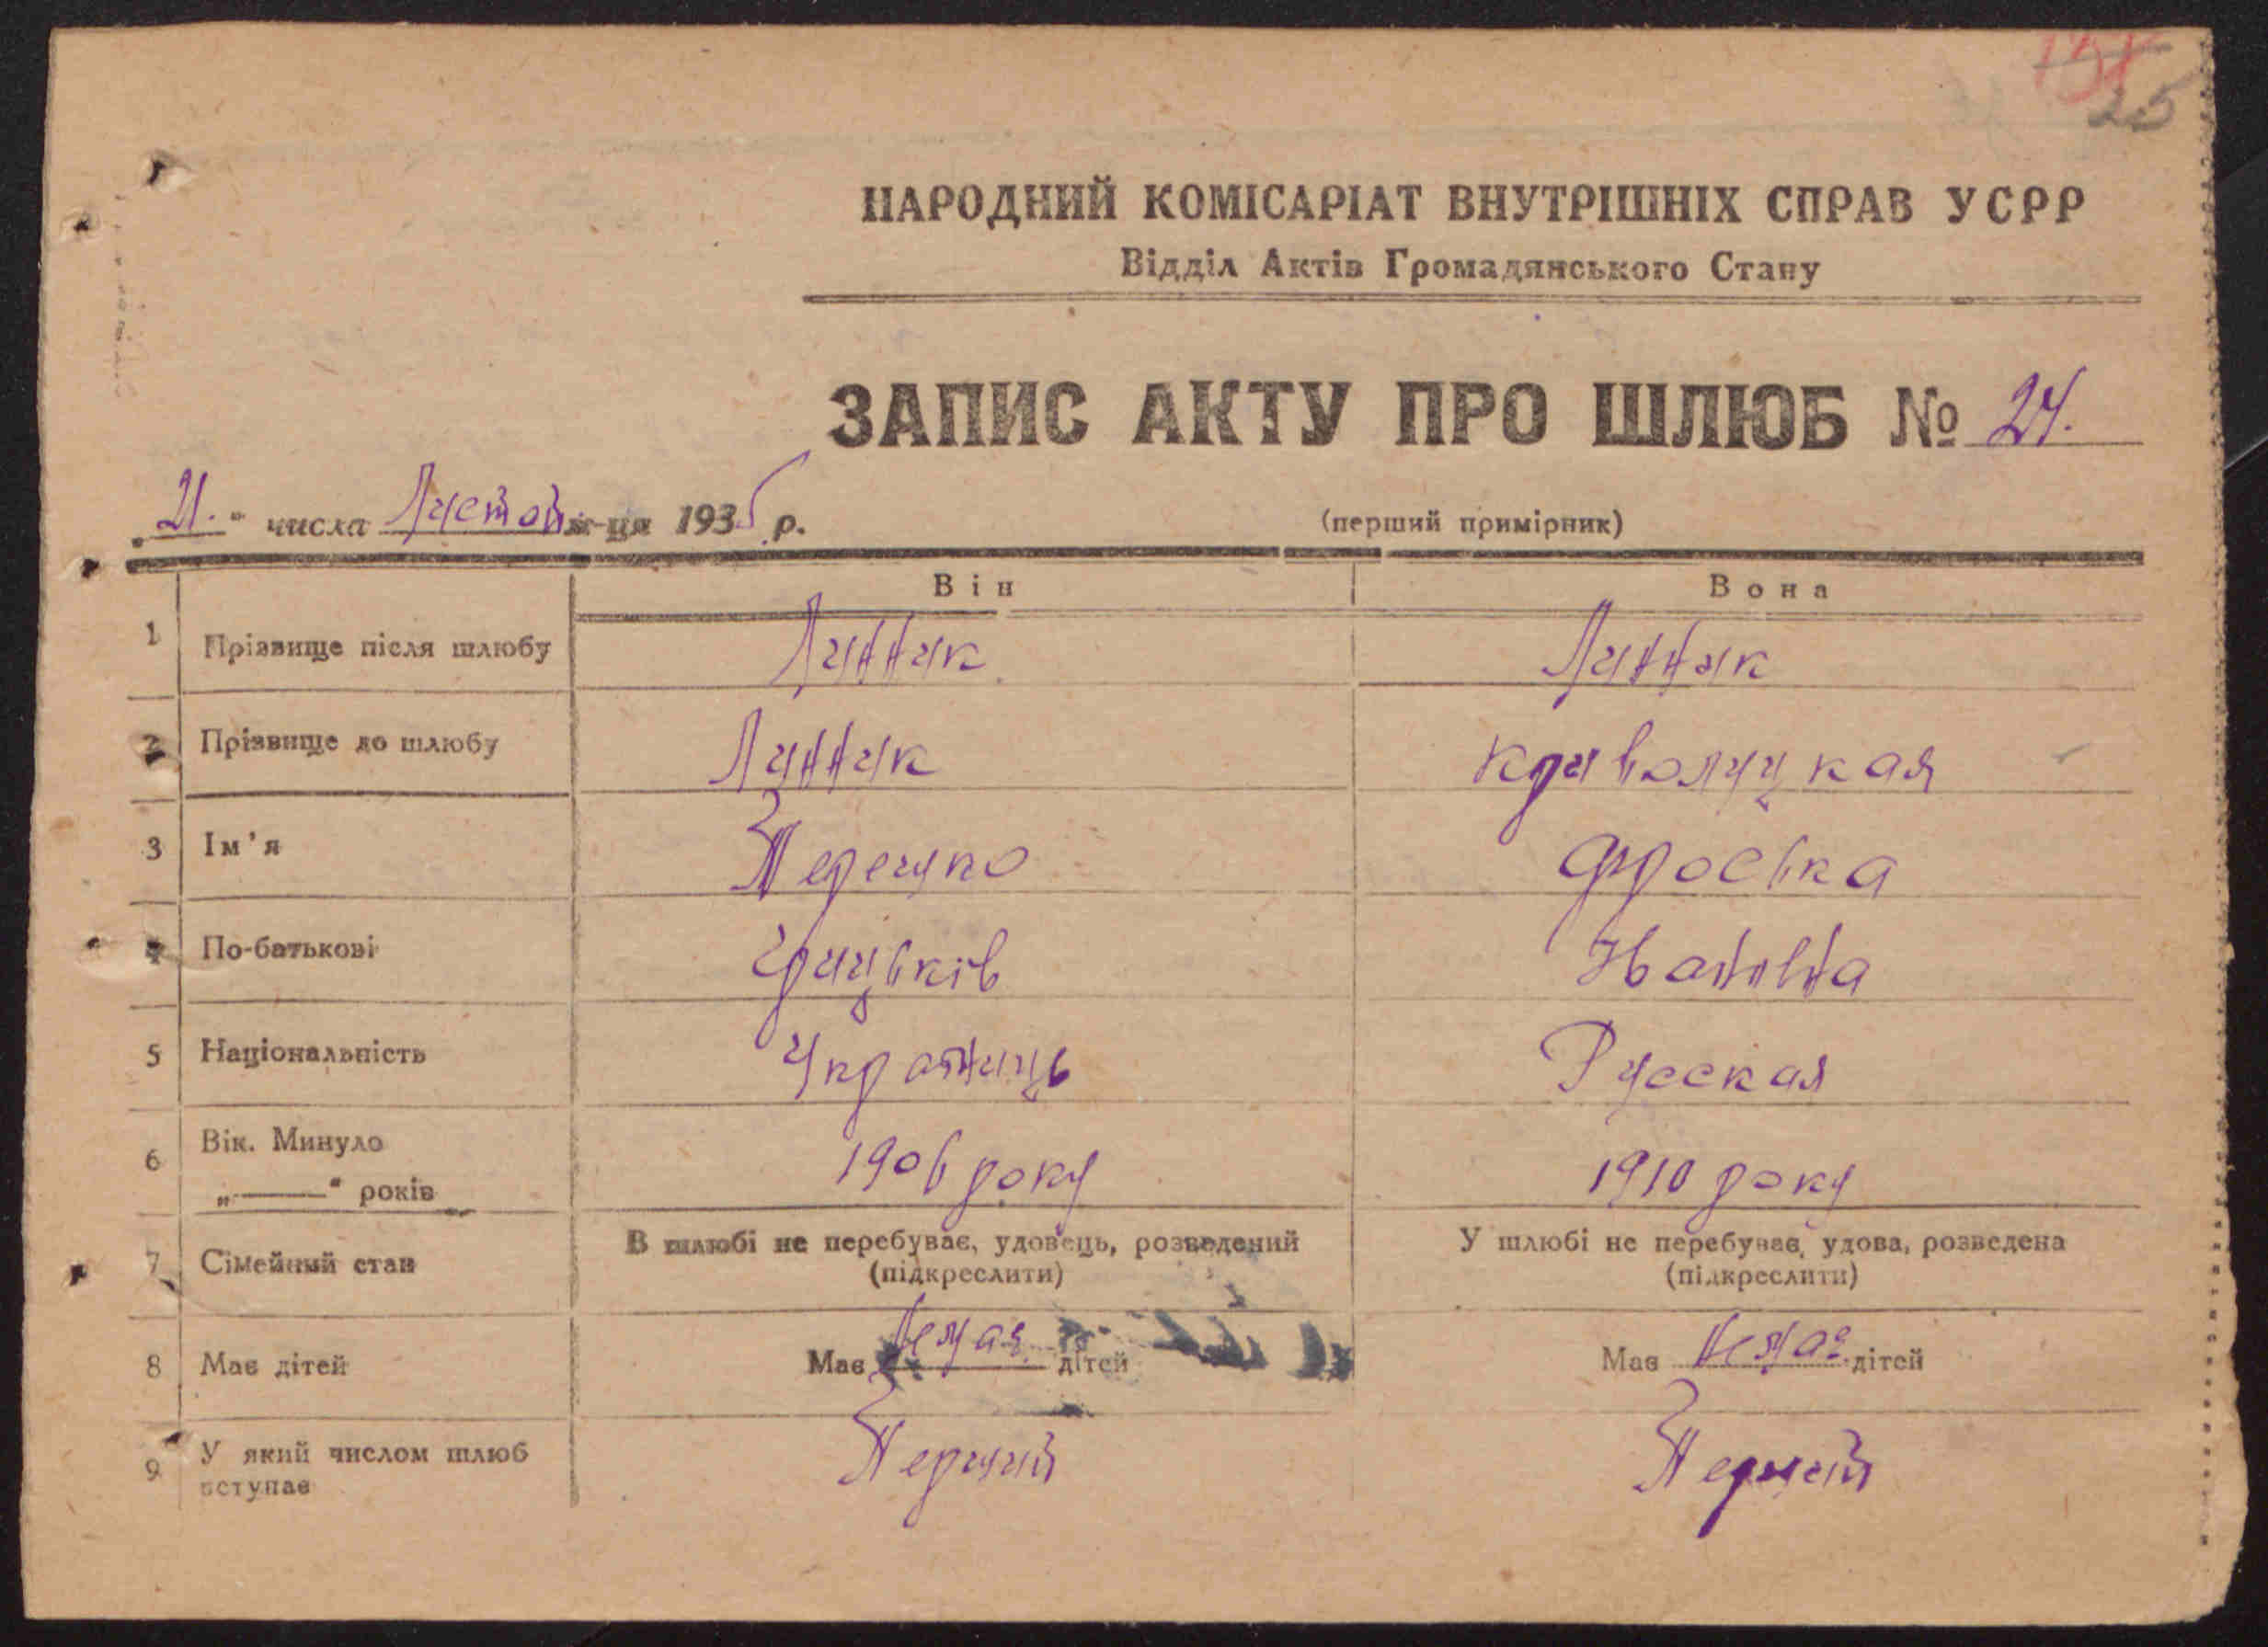 25
НАРОДНИЙ КОМІСАРІАТ ВНУТРІШНІХ СПРАВ УСРР
Відділ Актів Громадянського Стану
ЗАПИС АКТУ ПРО ШЛЮБ № 24.
„21.“ числа Листоп м-ця 1935 р.
(перший примірник)
Він Вона
1 Прізвище після шлюбу Линник Линник
2 Прізвище до шлюбу Линник Криволуцкая
3 Ім'я
4 По-батькові Грицьків
5 Національність Українець Русская
6 Вік. Минуло 1906 року 1910 року
„——“ років
7 Сімейний стан В шлюбі не перебуває, удовець, розведений У шлюбі не перебуває, удова, розведена
(підкреслити) (підкреслити)
8 Має дітей Має немає дітей Має немає дітей
9 У який числом шлюб Перший Перший
вступає